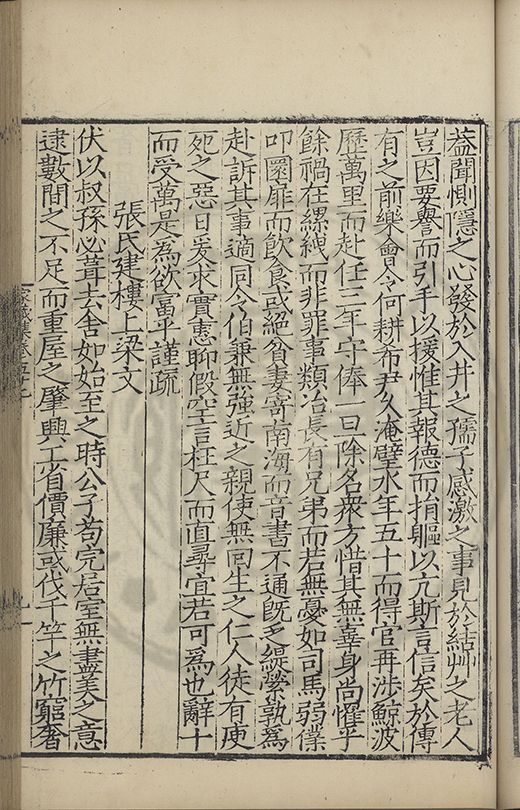 蓋聞惻隱之心發於入井之孺子感激之事見於結艸之老人
豈因要譽而引手以援惟其報德而捐軀以亢斯言信矣於傳
有之前樂會令何耕布尹久淹璧水年五十而得官再涉鯨波
歷萬里而赴任三年守俸一日除名衆方惜其無辜身尚懼乎
餘禍在縲絏而非罪事類冶長有兄弟而若無憂如司馬弱僕
叩圜扉而飲食或絕貧妻寄南海而音書不通旣乏緹縈孰爲
赴訴其事適同今伯兼無強近之親使無囘生之仁人徒有
死之惡日爰求實惠聊假空言枉尺而直尋宜若可爲也辭十
而受萬是爲欲富乎謹疏
張氏建樓上梁文
伏以叔孫必葺去舍如始至之時公子苟完居室無盡美之意
逮數間之不足而重屋之肇興工省價廉或伐千竿之竹窮奢